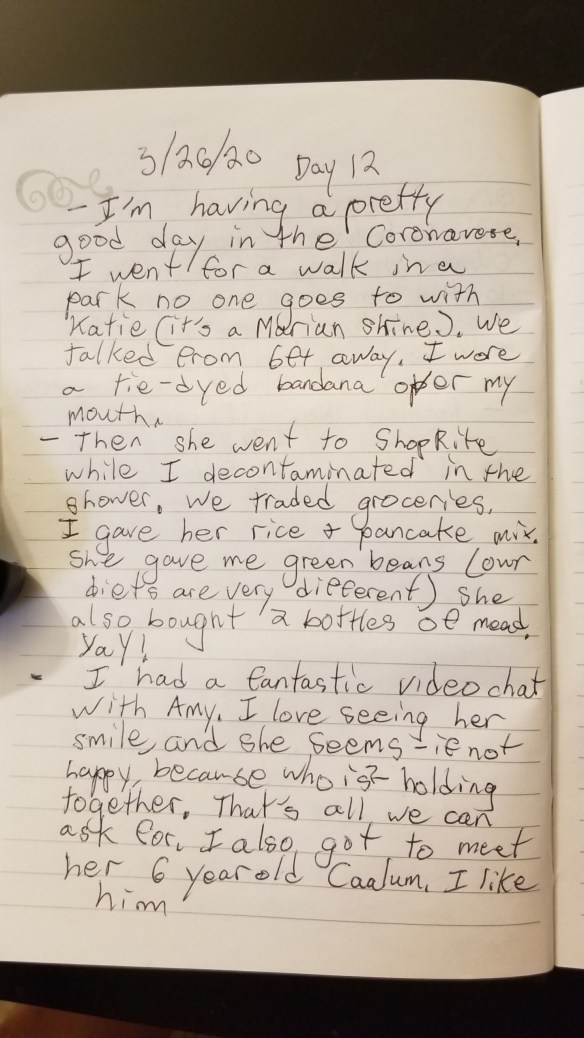 3/26/20 Day 12
- I'm having a pretty
good day in the Coronaverse.
I went for a walk in a
park no one goes to with
Katie (it's a Marian shrine). We
talked from 6ft away. I wore
a tie-dyed bandana over my
mouth.
- Then she went to ShopRite
while I decontaminated in the
shower. We traded groceries.
I gave her rice & pancake mix.
She gave me green beans (our
diets are very different) She
also bought 2 bottles of mead.
Yay!
- I had a fantastic video chat
with Amy. I love seeing her
smile, and she seems - if not
happy, because who is? - holding
together. That's all we can
ask for. I also got to meet
her 6 year old Caalum. I like
him